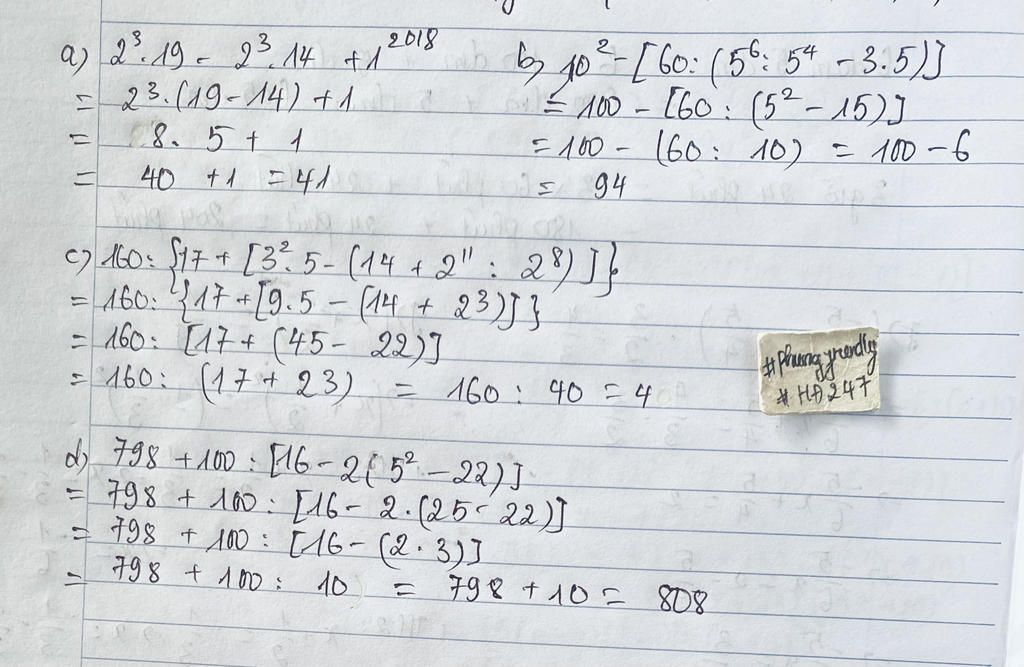 a) 2³.19 - 2³.14 + 1²⁰¹⁸
= 2³.(19-14) + 1
= 8. 5 + 1
= 40 + 1 = 41
b, 10² - [60: (5⁶: 5⁴ - 3.5)]
= 100 - [60 : (5² - 15)]
= 100 - (60: 10) = 100 - 6
= 94
c) 160: {17 + [3².5 - (14 + 2¹¹ : 2⁸)]}
= 160: {17 + [9.5 - (14 + 2³)]}
= 160: [17 + (45 - 22)]
= 160: (17 + 23) = 160 : 40 = 4
#HĐ247
d) 798 + 100 : [16 - 2(5² - 22)]
= 798 + 100 : [16 - 2.(25 - 22)]
= 798 + 100 : [16 - (2.3)]
= 798 + 100 : 10 = 798 + 10 = 808